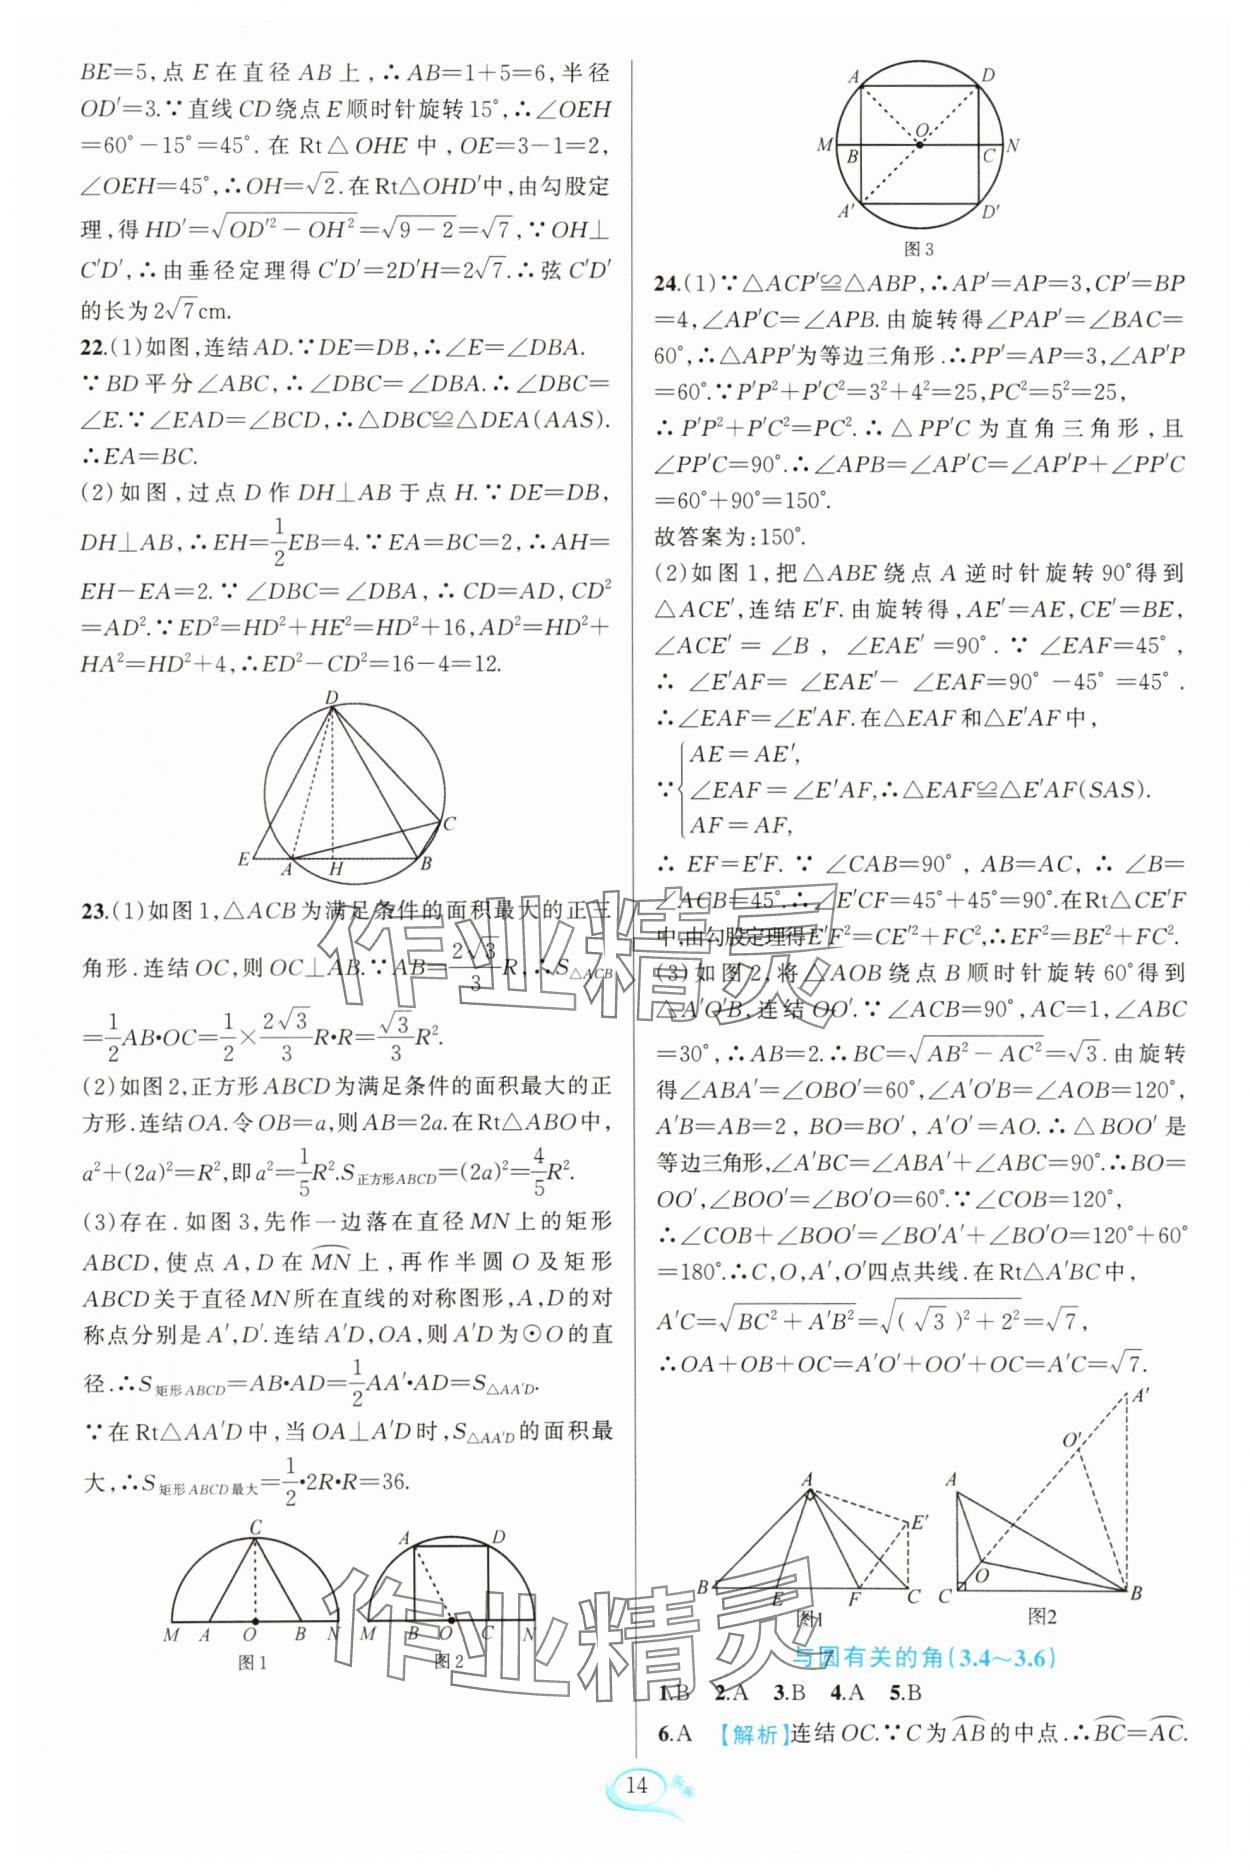 BE=5,点E在直径AB上,∴AB=1+5=6,半径
OD′=3.∵直线CD绕点E顺时针旋转15°,∴∠OEH
=60°-15°=45°.在Rt△OHE中,OE=3-1=2,
∠OEH=45°,∴OH=√2.在Rt△OHD′中,由勾股定
理,得HD′=√(OD′²-OH²)=√(9-2)=√7,∵OH⊥
C′D′,∴由垂径定理得C′D′=2D′H=2√7.∴弦C′D′
的长为2√7cm.
22.(1)如图,连结AD.∵DE=DB,∴∠E=∠DBA.
∵BD平分∠ABC,∴∠DBC=∠DBA.∴∠DBC=
∠E.∵∠EAD=∠BCD,∴△DBC≌△DEA(AAS).
∴EA=BC.
(2)如图,过点D作DH⊥AB于点H.∵DE=DB,
DH⊥AB,∴EH=1/2EB=4.∵EA=BC=2,∴AH=
EH-EA=2.∵∠DBC=∠DBA,∴CD=AD,CD²
=AD².∵ED²=HD²+HE²=HD²+16,AD²=HD²+
HA²=HD²+4,∴ED²-CD²=16-4=12.
D
C
E A H B
23.(1)如图1,△ACB为满足条件的面积最大的正三
角形.连结OC,则OC⊥AB.∵AB=2√3/3R,∴S△ACB
=1/2AB•OC=1/2×2√3/3R•R=√3/3R².
(2)如图2,正方形ABCD为满足条件的面积最大的正
方形.连结OA.令OB=a,则AB=2a.在Rt△ABO中,
a²+(2a)²=R²,即a²=1/5R².S正方形ABCD=(2a)²=4/5R².
(3)存在.如图3,先作一边落在直径MN上的矩形
ABCD,使点A,D在⌒MN上,再作半圆O及矩形
ABCD关于直径MN所在直线的对称图形,A,D的对
称点分别是A′,D′.连结A′D,OA,则A′D为⊙O的直
径.∴S矩形ABCD=AB•AD=1/2AA′•AD=S△AA′D.
∵在Rt△AA′D中,当OA⊥A′D时,S△AA′D的面积最
大,∴S矩形ABCD最大=1/2•2R•R=36.
C
M A O B N
图1
A D
M B O C N
图2
A D
M B O C N
A′ D′
图3
24.(1)∵△ACP′≌△ABP,∴AP′=AP=3,CP′=BP
=4,∠AP′C=∠APB.由旋转得∠PAP′=∠BAC=
60°,∴△APP′为等边三角形.∴PP′=AP=3,∠AP′P
=60°.∵P′P²+P′C²=3²+4²=25,PC²=5²=25,
∴P′P²+P′C²=PC².∴△PP′C为直角三角形,且
∠PP′C=90°.∴∠APB=∠AP′C=∠AP′P+∠PP′C
=60°+90°=150°.
故答案为:150°.
(2)如图1,把△ABE绕点A逆时针旋转90°得到
△ACE′,连结E′F.由旋转得,AE′=AE,CE′=BE,
∠ACE′=∠B,∠EAE′=90°.∵∠EAF=45°,
∴∠E′AF=∠EAE′-∠EAF=90°-45°=45°.
∴∠EAF=∠E′AF.在△EAF和△E′AF中,
AE=AE′,
∵{∠EAF=∠E′AF,∴△EAF≌△E′AF(SAS).
AF=AF,
∴EF=E′F.∵∠CAB=90°,AB=AC,∴∠B=
∠ACB=45°,∴∠E′CF=45°+45°=90°.在Rt△CE′F
中,由勾股定理得E′F²=CE′²+FC²,∴EF²=BE²+FC².
(3)如图2,将△AOB绕点B顺时针旋转60°得到
△A′O′B,连结OO′.∵∠ACB=90°,AC=1,∠ABC
=30°,∴AB=2.∴BC=√(AB²-AC²)=√3.由旋转
得∠ABA′=∠OBO′=60°,∠A′O′B=∠AOB=120°,
A′B=AB=2,BO=BO′,A′O′=AO.∴△BOO′是
等边三角形,∠A′BC=∠ABA′+∠ABC=90°.∴BO=
OO′,∠BOO′=∠BO′O=60°.∵∠COB=120°,
∴∠COB+∠BOO′=∠BO′A′+∠BO′O=120°+60°
=180°.∴C,O,A′,O′四点共线.在Rt△A′BC中,
A′C=√(BC²+A′B²)=√((√3)²+2²)=√7,
∴OA+OB+OC=A′O′+OO′+OC=A′C=√7.
A
E′
B E F C
图1
A′
O′
A
O
C B
图2
与圆有关的角(3.4~3.6)
1.B 2.A 3.B 4.A 5.B
6.A 【解析】连结OC.∵C为⌒AB的中点.∴⌒BC=⌒AC.
14
作业精灵
作业精灵